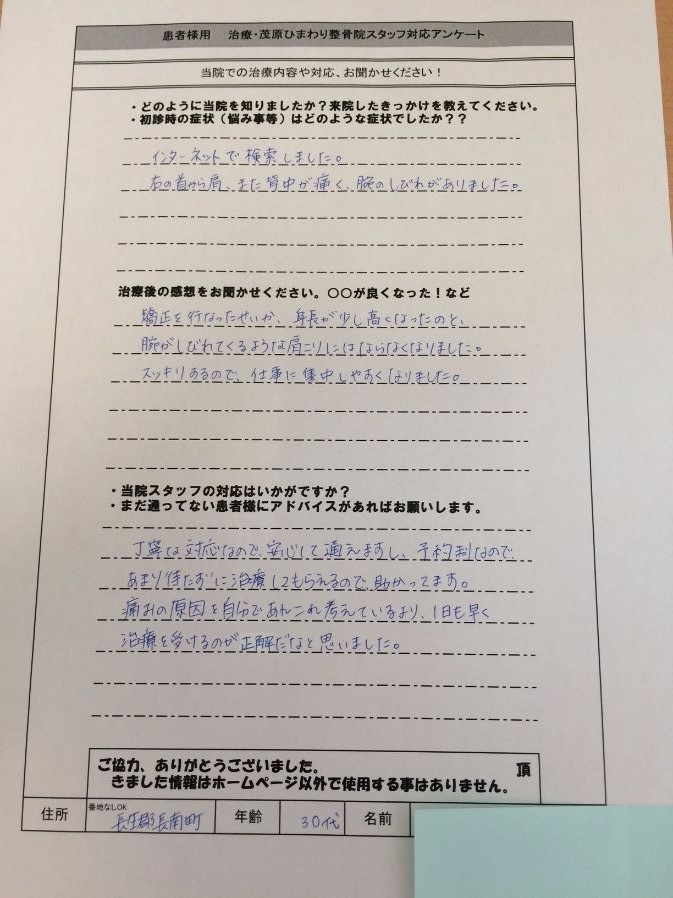 患者様用　治療・茂原ひまわり整骨院スタッフ対応アンケート
当院での治療内容や対応、お聞かせください！
・どのように当院を知りましたか？来院したきっかけを教えてください。
・初診時の症状（悩み事等）はどのような症状でしたか？？
インターネットで検索しました。
右の首から肩、また背中が痛く、腕のしびれがありました。
治療後の感想をお聞かせください。〇〇が良くなった！など
矯正を行なったせいか、身長が少し高くなったのと、
腕がしびれてくるような肩こりにはならなくなりました。
スッキリするので、仕事に集中しやすくなりました。
・当院スタッフの対応はいかがですか？
・まだ通ってない患者様にアドバイスがあればお願いします。
丁寧な対応なので、安心して通えますし、予約制なので、
あまり待たずに治療してもらえるので、助かってます。
痛みの原因を自分であれこれ考えているより、1日も早く
治療を受けるのが正解だなと思いました。
ご協力、ありがとうございました。
頂
きました情報はホームページ以外で使用する事はありません。
住所 番地なしOK 長生郡長南町 年齢 30代 名前